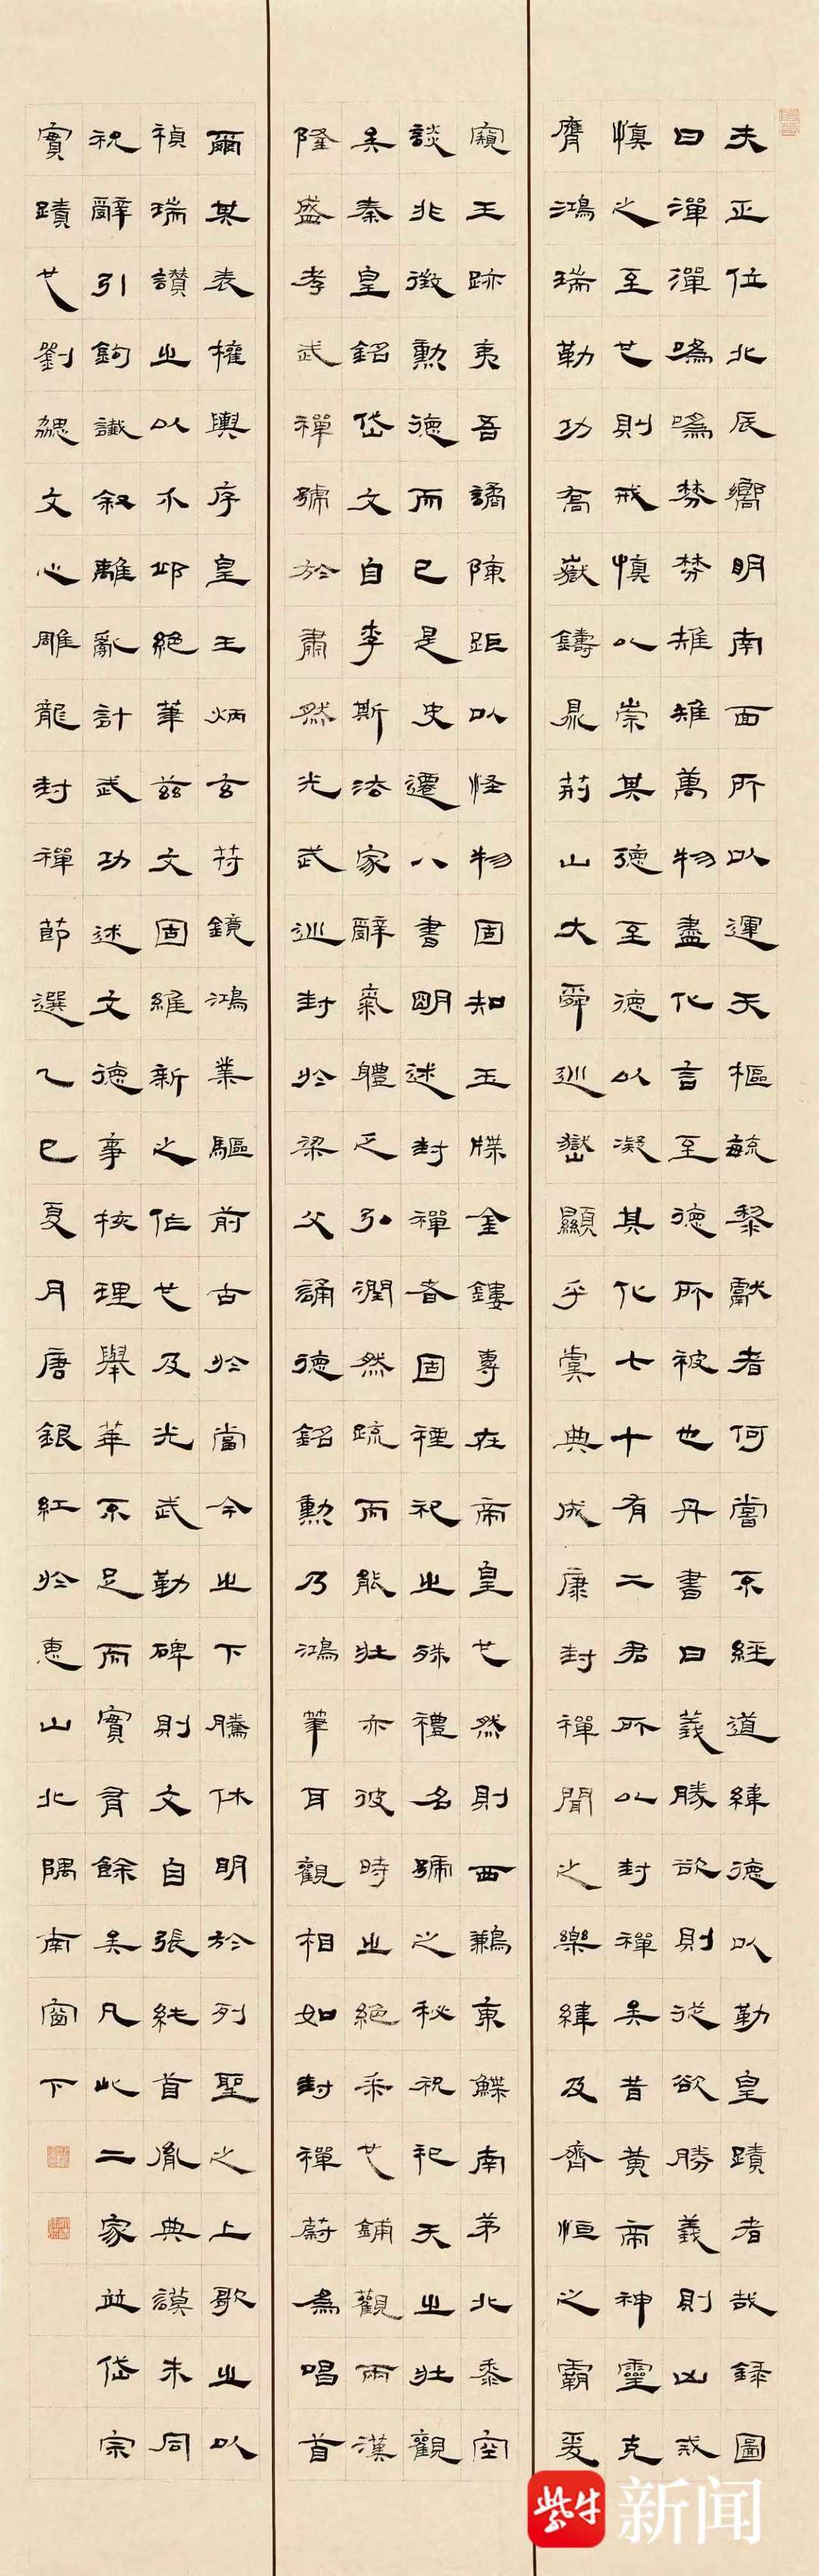 夫正位北辰嚮明南面所以運天樞毓黎獻者何嘗不經道緯德以勒皇蹟者哉錄圖
曰潬潬噅噅棼棼雉雉萬物盡化言至德所被也丹書曰義勝欲則從欲勝義則凶戒
慎之至也則戒慎以崇其德至德以凝其化七十有二君所以封禪矣昔黃帝神靈克
膺鴻瑞勒功喬嶽鑄鼎荊山大舜巡嶽顯乎虞典成康封禪聞之樂緯及齊恒之霸爰
窺王跡夷吾譎陳距以怪物固知玉牒金鏤專在帝皇也然則西鶼東鰈南茅北黍空
談非徵勳德而已是史遷八書明述封禪者固禋祀之殊禮名號之秘祝祀天之壯觀
矣秦皇銘岱文自李斯法家辭氣體乏弘潤然疏而能壯亦彼時之絕采也鋪觀兩漢
隆盛孝武禪號於肅然光武巡封於梁父誦德銘勳乃鴻筆耳觀相如封禪蔚為唱首
爾其表權輿序皇王炳玄符鏡鴻業驅前古於當今之下騰休明於列聖之上歌之以
禎瑞讚之以介邱絕筆茲文固維新之作也及光武勒碑則文自張純首胤典謨末同
祝辭引鉤讖敘離亂計武功述文德事核理舉華不足而實有餘矣凡此二家並岱宗
實蹟也劉勰文心雕龍封禪節選乙巳夏月唐銀紅於惠山北隅南窗下
紫牛新闻